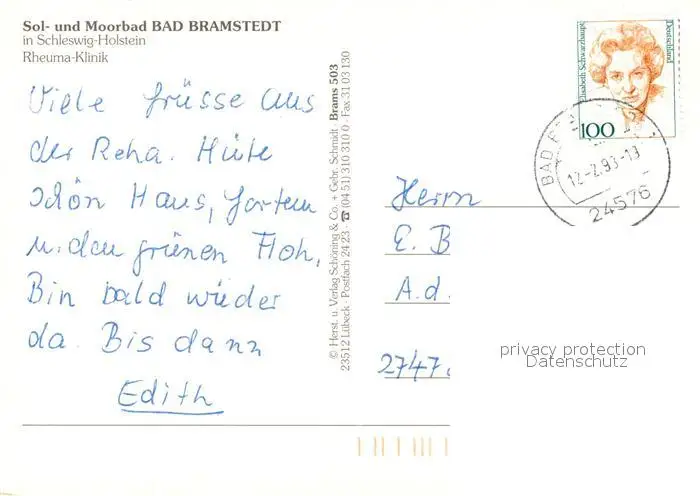 Sol- und Moorbad BAD BRAMSTEDT
in Schleswig-Holstein
Rheuma-Klinik
Viele Grüsse aus
der Reha. Hüte
schön Haus, Garten
u. den grünen Floh.
Bin bald wieder
da. Bis dann
Edith
© Herst. u. Verlag Schöning & Co. + Gebr. Schmidt Brams 503
23512 Lübeck · Postfach 24 23 · ☎ (04 51) 3 10 31 0 · Fax 31 03 130
Elisabeth Schwarzhaupt
Deutschland
100
BAD
24576
Herrn
E. B
A. d.
2747
privacy protection
Datenschutz